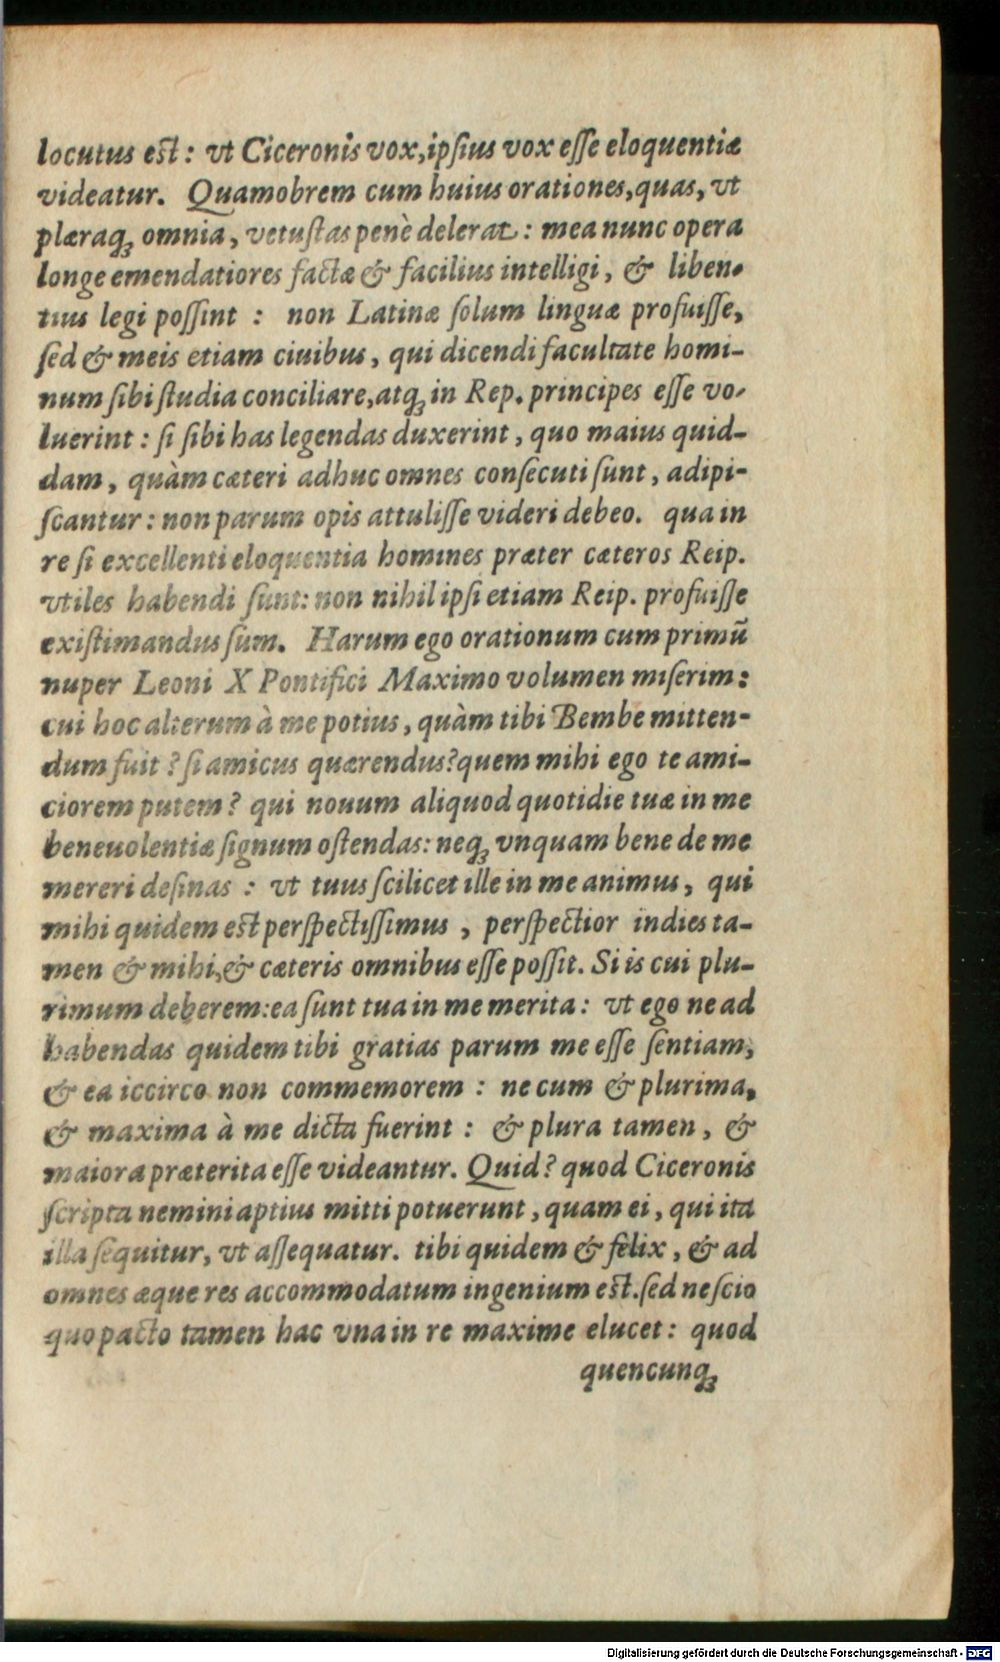 locutus est: vt Ciceronis vox, ipſius vox eſſe eloquentiæ
videatur. Quamobrem cum huius orationes, quas, vt
plæraqꝫ omnia, vetuſtas penè delerat: mea nunc opera
longe emendatiores factæ & facilius intelligi, & liben-
tius legi poſſint : non Latinæ ſolum linguæ profuiſſe,
ſed & meis etiam ciuibus, qui dicendi facultate homi-
num ſibi ſtudia conciliare, atqꝫ in Rep. principes eſſe vo-
luerint: ſi ſibi has legendas duxerint, quo maius quid-
dam, quàm cæteri adhuc omnes conſecuti ſunt, adipi-
ſcantur: non parum opis attuliſſe videri debeo. qua in
re ſi excellenti eloquentia homines præter cæteros Reip.
vtiles habendi ſunt: non nihil ipſi etiam Reip. profuiſſe
exiſtimandus ſum. Harum ego orationum cum primũ
nuper Leoni X Pontifici Maximo volumen miſerim:
cui hoc alterum à me potius, quàm tibi Bembe mitten-
dum fuit? ſi amicus quærendus? quem mihi ego te ami-
ciorem putem? qui nouum aliquod quotidie tuæ in me
beneuolentiæ ſignum oſtendas: neqꝫ vnquam bene de me
mereri deſinas : vt tuus ſcilicet ille in me animus, qui
mihi quidem est perſpectiſſimus, perſpectior indies ta-
men & mihi, & cæteris omnibus eſſe poſſit. Si is cui plu-
rimum deberem: ea ſunt tua in me merita: vt ego ne ad
habendas quidem tibi gratias parum me eſſe ſentiam,
& ea iccirco non commemorem : ne cum & plurima,
& maxima à me dicta fuerint : & plura tamen, &
maiora præterita eſſe videantur. Quid? quod Ciceronis
ſcripta nemini aptius mitti potuerunt, quam ei, qui ita
illa ſequitur, vt aſſequatur. tibi quidem & felix, & ad
omnes æque res accommodatum ingenium est. ſed neſcio
quo pacto tamen hac vna in re maxime elucet: quod
quencunqꝫ
Digitalisierung gefördert durch die Deutsche Forschungsgemeinschaft - DFG